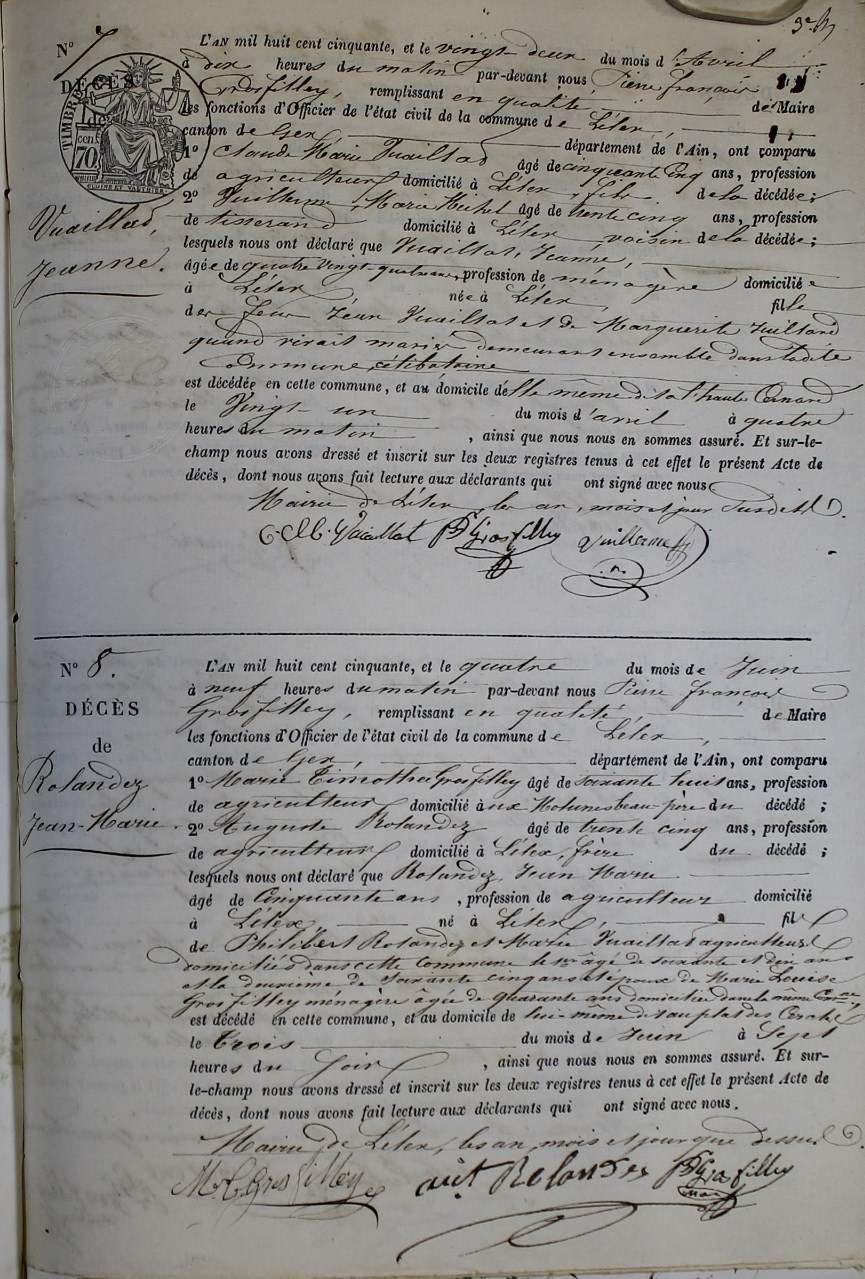 3e
N° 7
L'AN mil huit cent cinquante, et le vingt-deux du mois d'Avril
à dix heures du matin par-devant nous Pierre François
DÉCÈS
Grosfilley, remplissant en qualité de Maire
de
les fonctions d'Officier de l'état civil de la commune de Lélex,
TIMBRE
70 cen.
canton de Gex département de l'Ain, ont comparu
1° Claude Marie Vuaillat âgé de cinquante cinq ans, profession
de agriculteur domicilié à Lélex, fils de la décédée;
2° Vuillerme, Marie Michel âgé de trente cinq ans, profession
Vuaillat,
de tisserand domicilié à Lélex, voisin de la décédée;
Jeanne.
lesquels nous ont déclaré que Vuaillat, Jeanne,
âgée de quatre vingt-quatre ans, profession de ménagère domiciliée
à Lélex née à Lélex, fille
de Jean Vuaillat et de Marguerite
quand vivait mariés demeurant ensemble dans ladite
commune célibataire
est décédée en cette commune, et au domicile de elle même dit
le Vingt-un du mois d'avril à quatre
heures du matin, ainsi que nous nous en sommes assuré. Et sur-le-
champ nous avons dressé et inscrit sur les deux registres tenus à cet effet le présent Acte de
décès, dont nous avons fait lecture aux déclarants qui ont signé avec nous
Mairie de Lélex, les an, mois et jour susdit.
C. M. Vuaillat Grosfilley Vuillerme
N° 8.
L'AN mil huit cent cinquante, et le quatre du mois de Juin
à neuf heures du matin par-devant nous Pierre François
DÉCÈS
Grosfilley, remplissant en qualité, de Maire
de
les fonctions d'Officier de l'état civil de la commune de Lélex,
canton de Gex, département de l'Ain, ont comparu
Rolandez
1° Marie Timothée Grosfilley âgé de soixante huit ans, profession
Jean-Marie.
de agriculteur domicilié aux beau-père du décédé;
2° Auguste Rolandez âgé de trente cinq ans, profession
de agriculteur domicilié à Lélex, frère du décédé;
lesquels nous ont déclaré que Rolandez, Jean Marie
âgé de Cinquante ans, profession de agriculteur domicilié
à Lélex, né à Lélex, fils
de Philibert Rolandez et Marie Vuaillat agriculteurs
domiciliés dans cette commune le 1er âgé de soixante et dix ans
et la deuxième de soixante cinq ans et époux de Marie Louise
Grosfilley ménagère âgée de quarante ans domiciliée dans la même Cne
est décédé en cette commune, et au domicile de lui-même dit au plat des
le trois du mois de Juin à Sept
heures du soir, ainsi que nous nous en sommes assuré. Et sur-
le-champ nous avons dressé et inscrit sur les deux registres tenus à cet effet le présent Acte de
décès, dont nous avons fait lecture aux déclarants qui ont signé avec nous.
Mairie de Lélex, les an, mois et jour que dessus
M. T. Grosfilley aût Rolandez Grosfilley